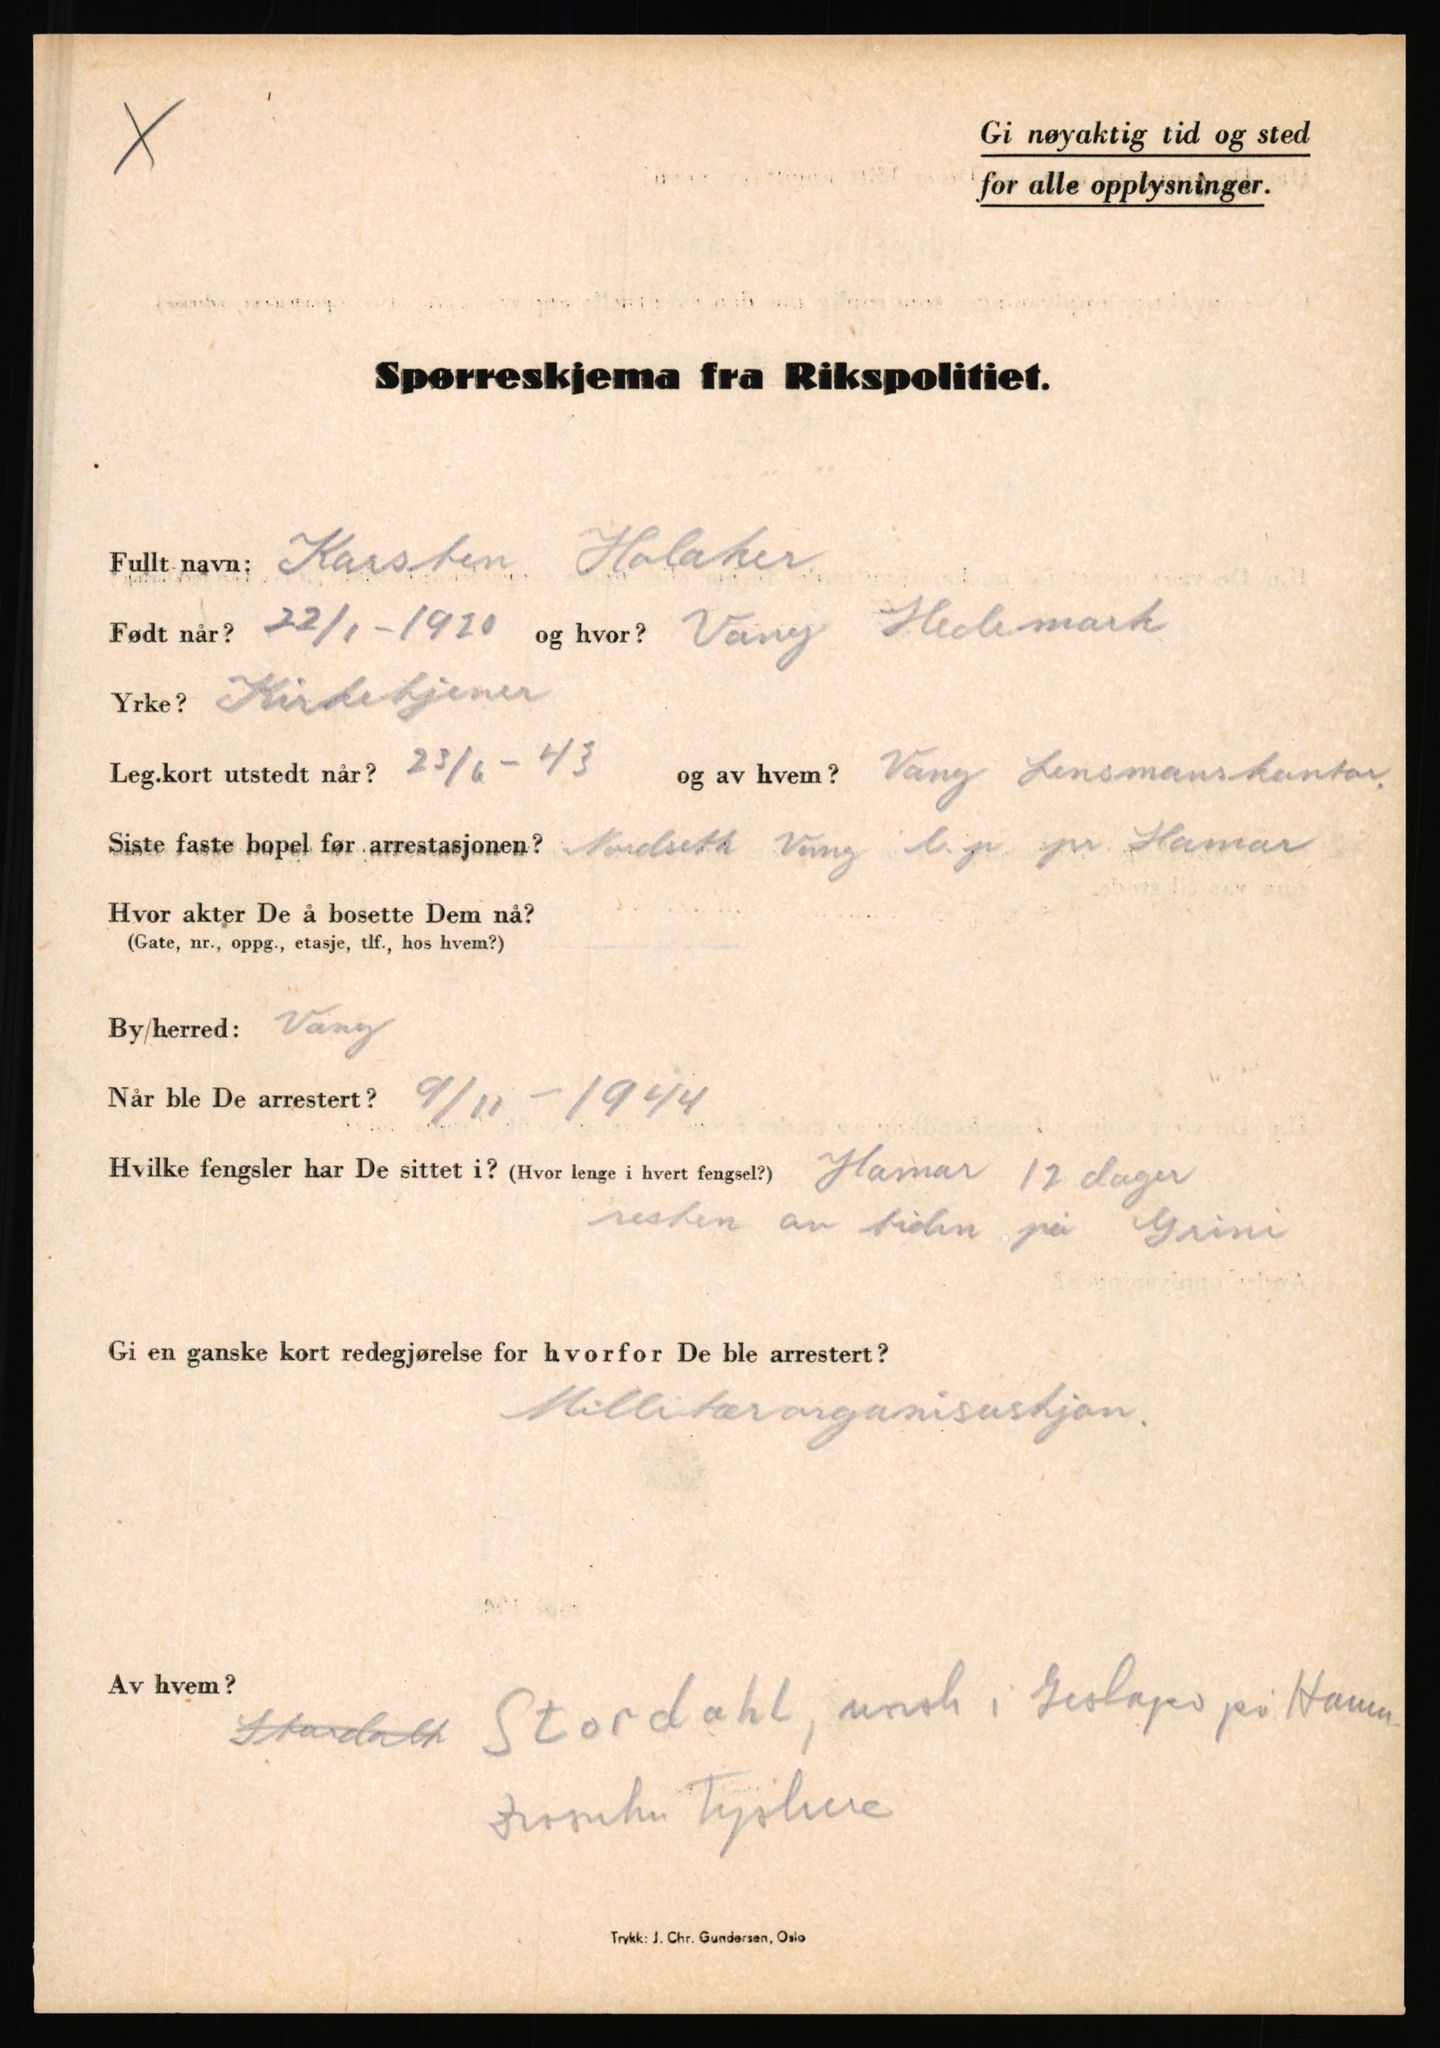 X
Gi nøyaktig tid og sted
for alle opplysninger.
Spørreskjema fra Rikspolitiet.
Fullt navn: Karsten Holaker
Født når? 22/1-1920 og hvor? Vang Hedemark
Yrke? Kirketjener
Leg.kort utstedt når? 23/6-43 og av hvem? Vang Lensmanskontor.
Siste faste bopel før arrestasjonen? Nordseth Vang l.p. pr. Hamar
Hvor akter De å bosette Dem nå?
(Gate, nr., oppg., etasje, tlf., hos hvem?)
By/herred: Vang
Når ble De arrestert? 9/11-1944
Hvilke fengsler har De sittet i? (Hvor lenge i hvert fengsel?) Hamar 12 dager
resten av tiden på Grini
Gi en ganske kort redegjørelse for hvorfor De ble arrestert?
Millitærorganisaskjon.
Av hvem?
Stordahl Stordahl, norsk i Gestapo på Hamar
Tyskere
Trykk: J. Chr. Gundersen, Oslo